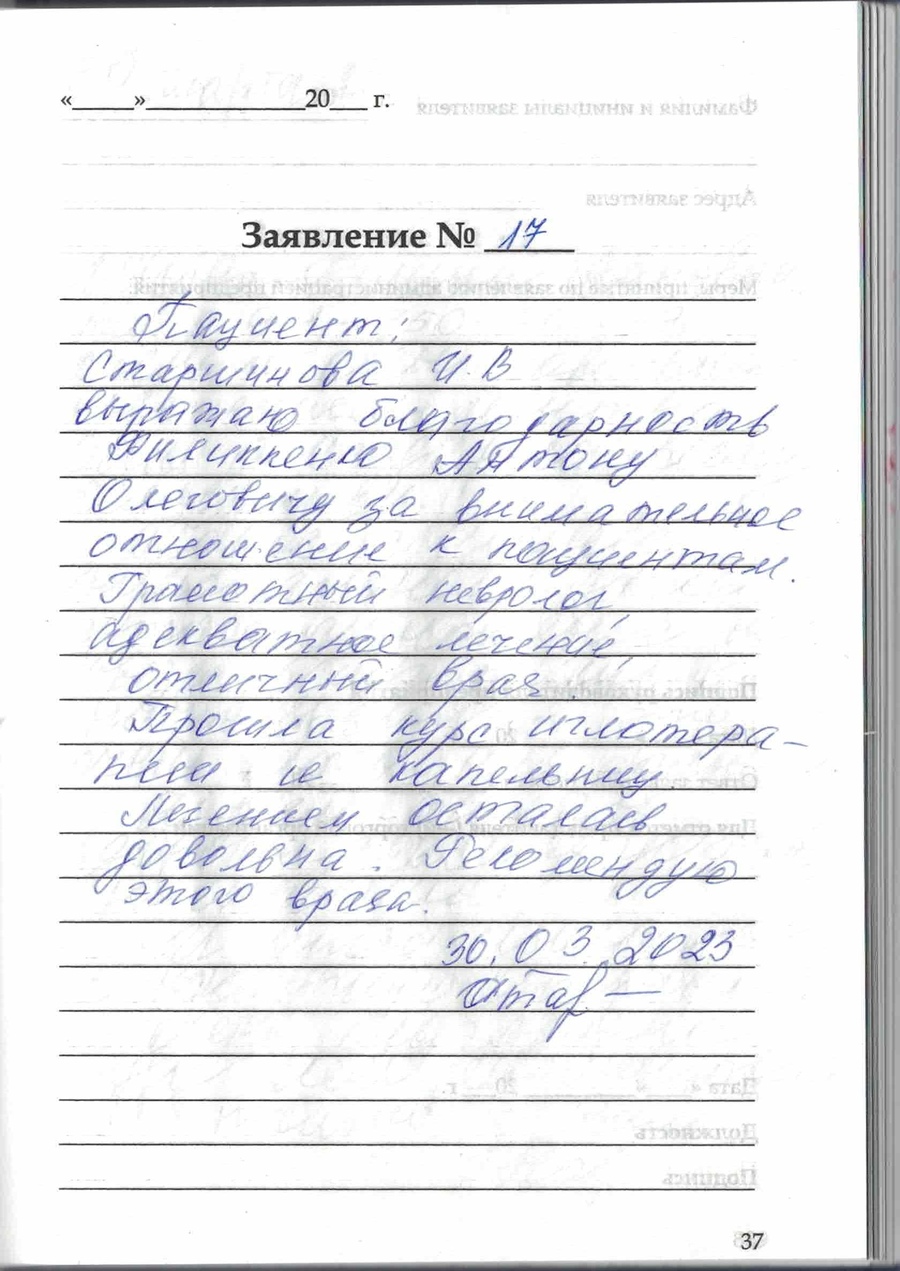 «_____»_____________20___ г.
Заявление № 17
Пациент:
Старшинова И.В
выражаю благодарность
Филиппенко Антону
Олеговичу за внимательное
отношение к пациентам.
Грамотный невролог,
адекватное лечение,
отличный врач.
Прошла курс иглотера-
пии и капельниц
Лечением осталась
довольна. Рекомендую
этого врача.
30.03.2023
37